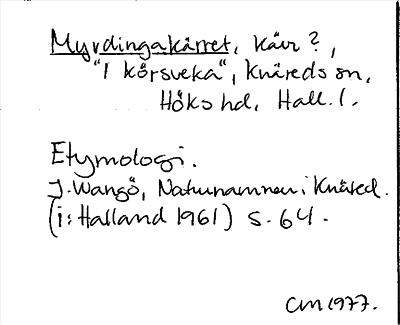 Myrdingakärret, kärr?,
"I körsveka", Knäreds sn,
Höks hd, Hall. l.
Etymologi.
J. Wangö, Naturnamnen i Knäred.
(i: Halland 1961) s. 64.
CM 1977.